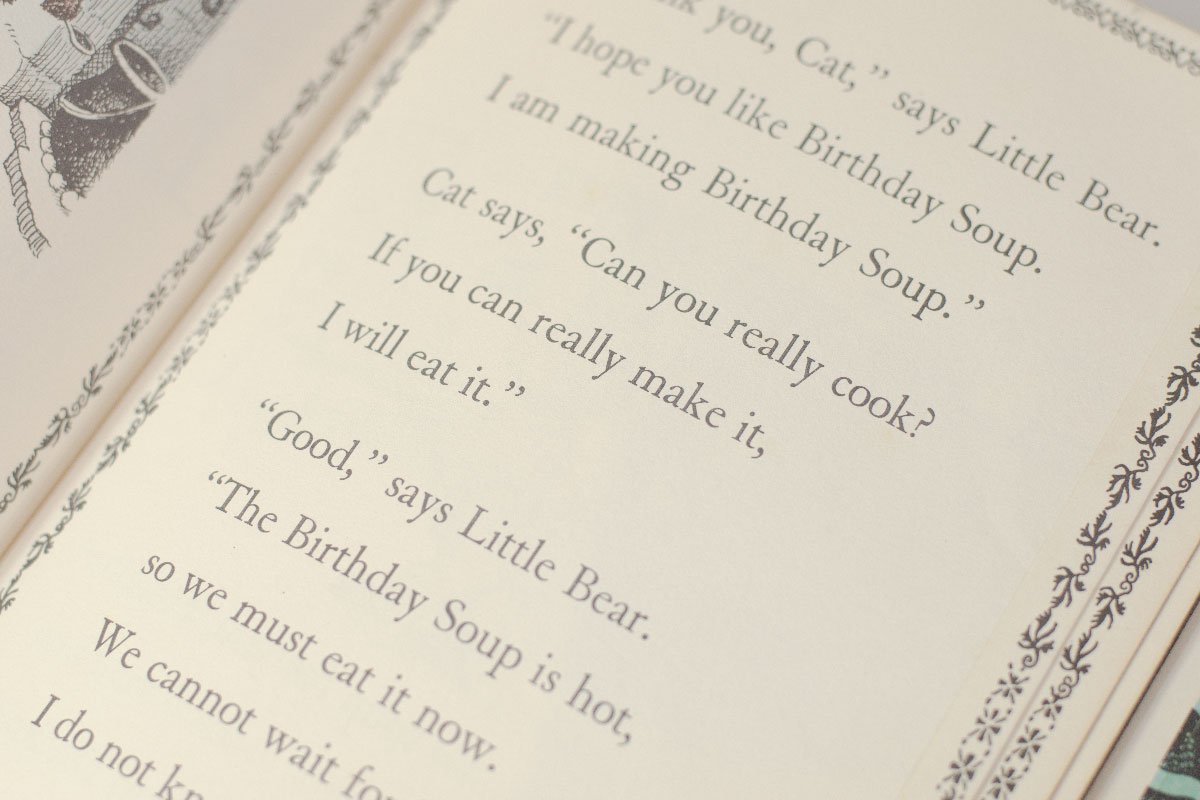 you, Cat,” says Little Bear.
“I hope you like Birthday Soup.
I am making Birthday Soup.”
Cat says, “Can you really cook?
If you can really make it,
I will eat it.”
“Good,” says Little Bear.
“The Birthday Soup is hot,
so we must eat it now.
We cannot wait for
I do not